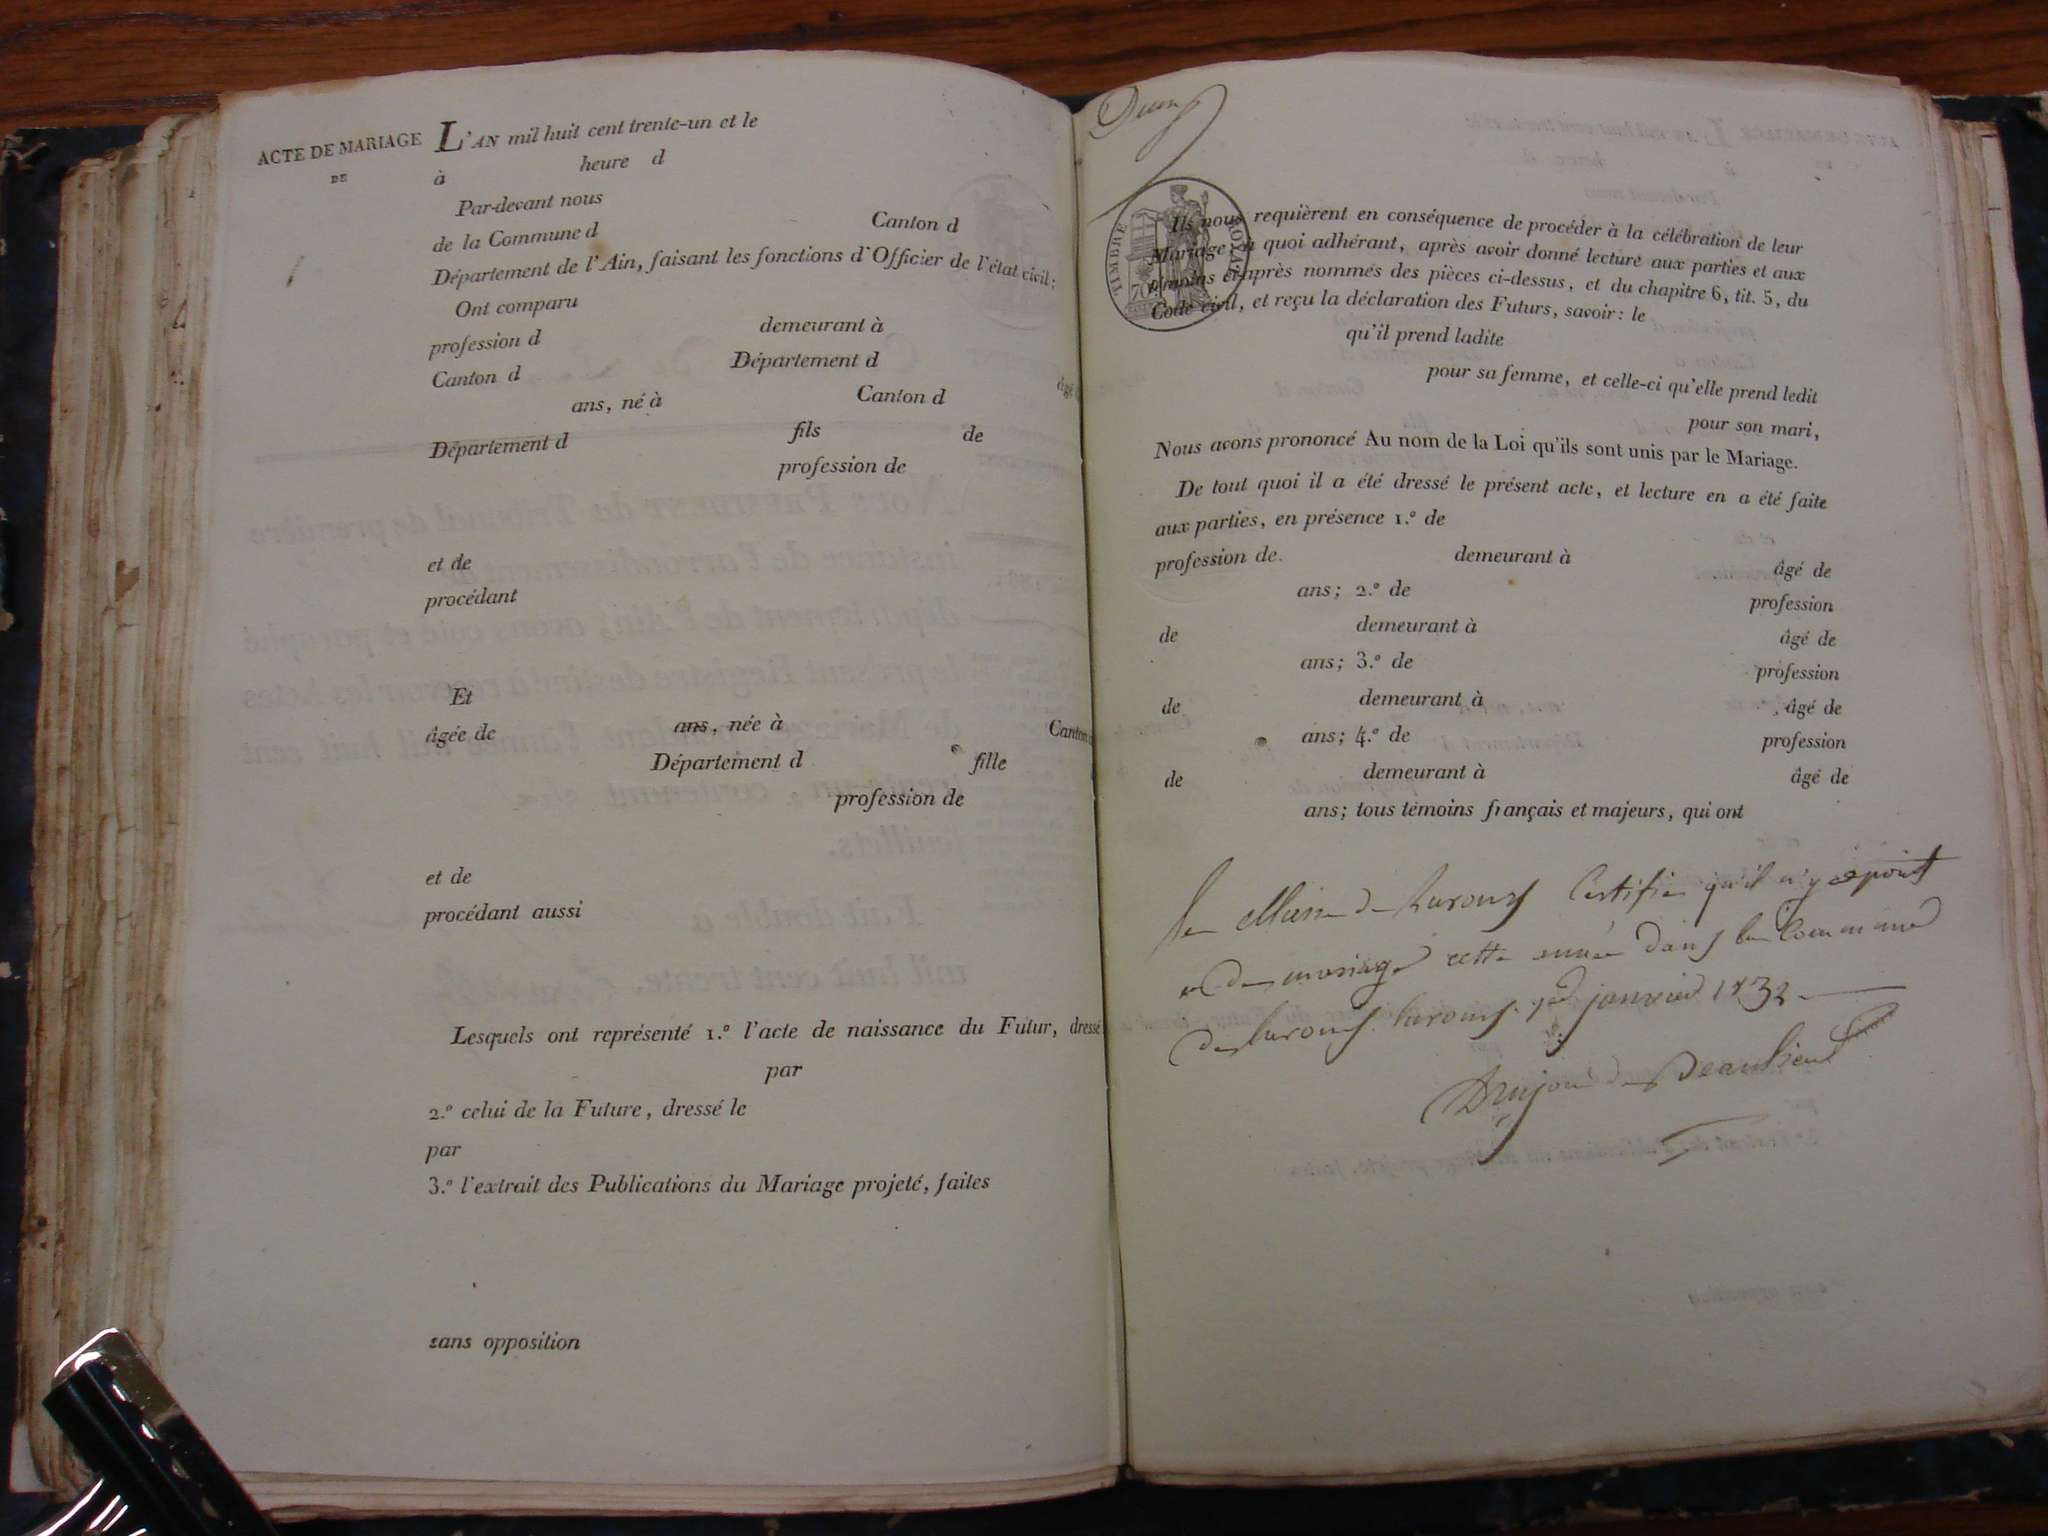 ACTE DE MARIAGE
DE
L'AN mil huit cent trente-un et le
à heure d
Par-devant nous
de la Commune d Canton d
Département de l'Ain, faisant les fonctions d'Officier de l'état civil;
Ont comparu
profession d demeurant à
Canton d Département d âgé
ans, né à Canton d
Département d fils de
profession de
et de
procédant
Et
âgée de ans, née à Canton
Département d fille
profession de
et de
procédant aussi
Lesquels ont représenté 1.º l'acte de naissance du Futur, dressé
par
2.º celui de la Future, dressé le
par
3.º l'extrait des Publications du Mariage projeté, faites
sans opposition
TIMBRE ROYAL
70
Ils nous requièrent en conséquence de procéder à la célébration de leur
Mariage; à quoi adhérant, après avoir donné lecture aux parties et aux
témoins ci-après nommés des pièces ci-dessus, et du chapitre 6, tit. 5, du
Code civil, et reçu la déclaration des Futurs, savoir: le
qu'il prend ladite
pour sa femme, et celle-ci qu'elle prend ledit
pour son mari,
Nous avons prononcé Au nom de la Loi qu'ils sont unis par le Mariage.
De tout quoi il a été dressé le présent acte, et lecture en a été faite
aux parties, en présence 1.º de
profession de demeurant à âgé de
ans; 2.º de profession
de demeurant à âgé de
ans; 3.º de profession
de demeurant à âgé de
ans; 4.º de profession
de demeurant à âgé de
ans; tous témoins français et majeurs, qui ont
Le Maire de Certifie qu'il n'y a point
de mariage cette année dans la Commune
de janvier 1832
de Beaulieu